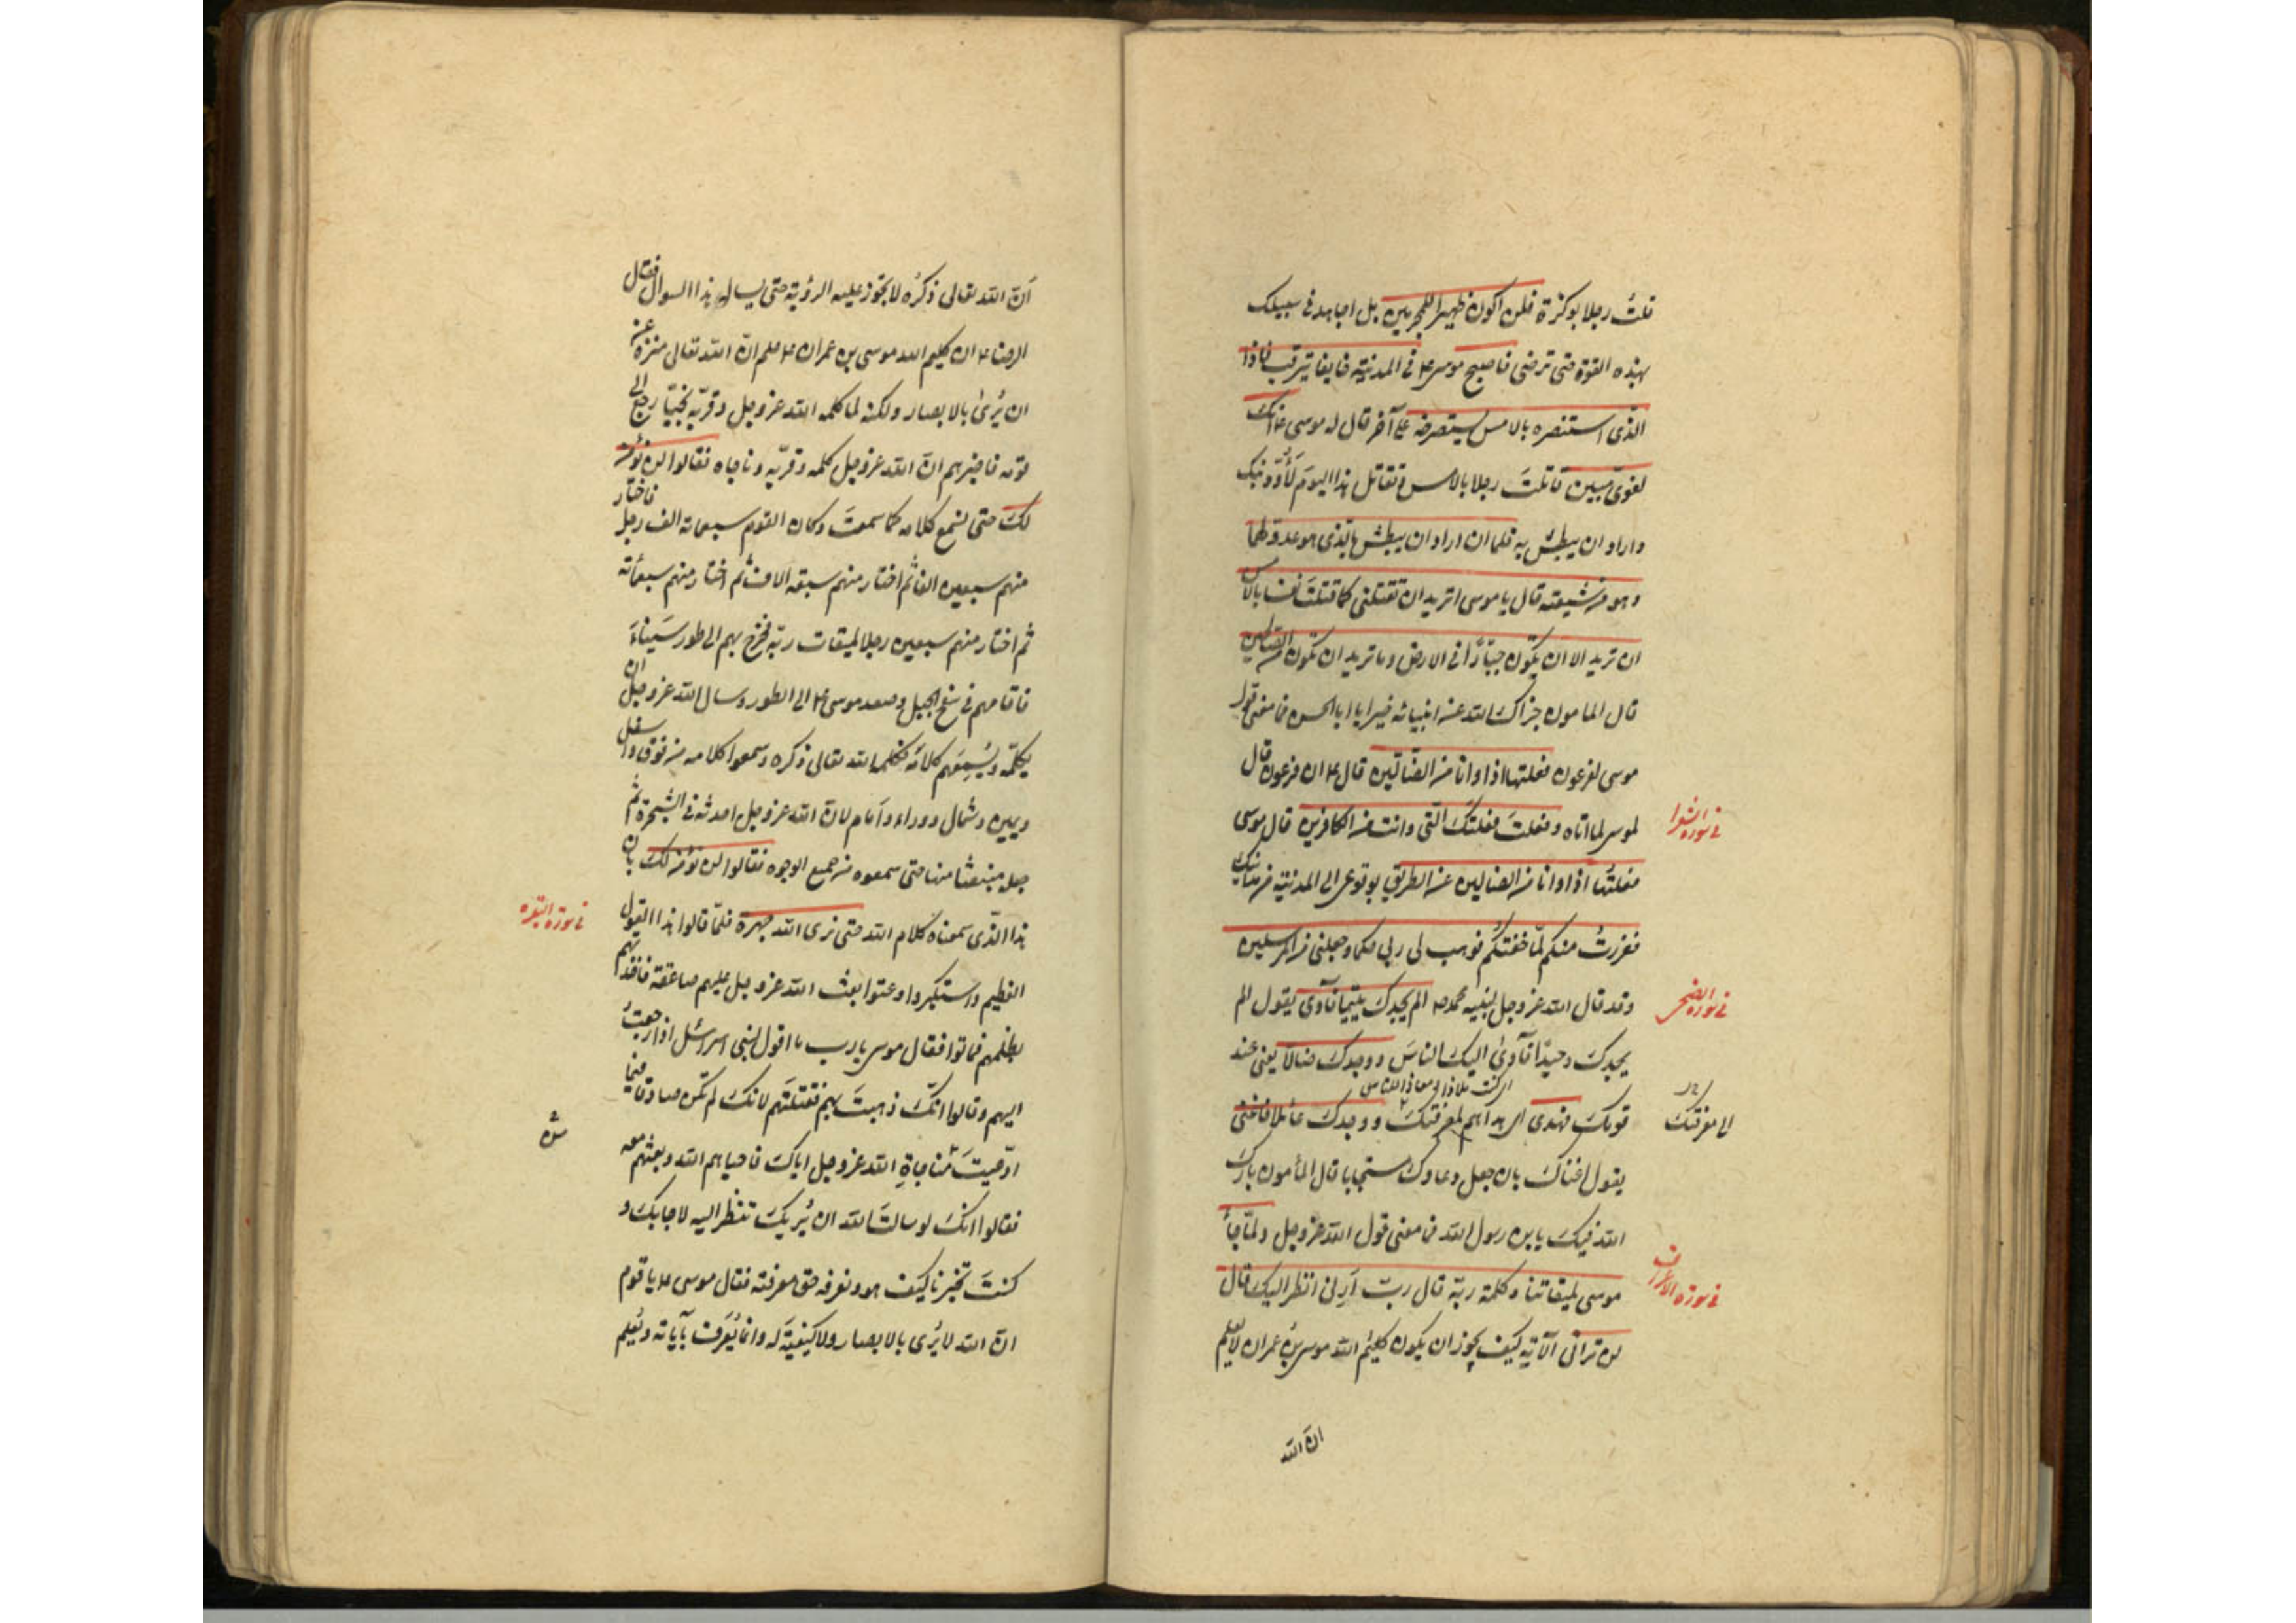 قتلت رجلا بوكزة فلن اكون ظهيرا للمجرمين بل اجاهد في سبيلك
بهذه القوة حتى ترضى فاصبح موسى ع في المدينة خايفا يترقب فاذا
الّذى استنصره بالامس يستصرخه على آخر قال له موسى ع انك
لغوىّ مبين قاتلتَ رجلا بالامس وتقاتل هذا اليومَ لَأُوذينّك
واراد ان يبطش به فلما ان اراد ان يبطش بالّذى هو عدوّ لهما
وهو من شيعته قال يا موسى اتريد ان تقتلنى كما قتلتَ نفسا بالامس
ان تريد الا ان تكون جبّارًا في الارض وما تريد ان تكون من المصلحين
قال المامون جزاك الله عن انبيائه خيرا يا ابا الحسن فما معنى قول
موسى لفرعون فعلتها اذا وانا من الضالّين قال ع ان فرعون قال
لموسى لما اتاه وفعلتَ فعلتكَ الّتى وانت من الكافرين قال موسى
فعلتُها اذا وانا من الضالين عن الطريق بوقوعى الى مدينة من مداينك
ففررتُ منكم لمّا خفتكُم فوهب لى ربى حكما وجعلنى من المرسلين
وقد قال الله عز وجل لنبيه محمد ص الم يجدك يتيما فآوى يقول الم
يجدكَ وحيدًا فآوىٰ اليك الناسَ ووجدكَ ضالّا يعنى عند
قومكَ فهدى اى هداهم لمعرفتكَ ووجدكَ عائلا فاغنى
يقول اغناكَ بان جعل دعاءكَ مستجابا قال المأمون بارك
الله فيك يا بن رسول الله فما معنى قول الله عز وجل ولمّا جاءَ
موسى لميقاتنا وكلمه ربّه قال ربّ اَرِنى انظر اليك قال
لن ترانى الآية كيف يجوز ان يكون كليم الله موسى بنُ عمران لا يعلم
ان الله
فى سورة الشعرا
فى سورة الضحى
الى معرفتك
فى سورة الاعراف
اَنّ الله تعالى ذكرُه لا يجوز عليه الرؤية حتى يسال هذا السوال فقال
الرضا ع ان كليم الله موسى بن عمران ع علم انّ الله تعالى منزه عن
ان يُرىٰ بالابصار ولكنه لما كلمه الله عز وجل وقربّه نجيّا رجع الى
قومه فاخبرهم انّ الله عز وجل كلمه وقربّه وناجاه فقالوا لن نؤمن
لكَ حتى نسمع كلامه كما سمعتَ وكان القوم سبعمائة الف رجل فاختار
منهم سبعين الفا ثم اختار منهم سبعة الاف ثم اختار منهم سبعمائة
ثم اختار منهم سبعين رجلا لميقات ربّه فخرج بهم الى طور سَيناءَ
فاقامهم في سفح الجبل وصعد موسى ع الى الطور وسال الله عز وجل ان
يكلمّه ويُسمِعَهم كلامَه فكلمه الله تعالى ذكره وسمعوا كلامه من فوق واسفل
ويمين وشمال ووراء واَمام لانّ الله عز وجل احدثه في الشجرة ثم
جعله منبعثا منها حتى سمعوه من جميع الوجوه فقالوا لن نؤمن لكَ بان
هذا الّذى سمعناه كلام الله حتى نرى الله جهرة فلمّا قالوا هذا القول
العظيم واستكبروا وعتوا بعث الله عز وجل عليهم صاعقة فاخذتهم
بظلمهم فماتوا فقال موسى يا رب ما اقول لبنى اسرائيل اذا رجعتُ
اليهم وقالوا انكّ ذهبتَ بهم فقتلتَهم لانكَ لم تكن صادقا فيما
ادّعيتَ من مناجاةِ الله عز وجل اياكَ فاحياهم الله وبعثهم معه
فقالوا انكَ لو سالتَ الله ان يُريكَ تنظر اليه لاجابكَ و
كنتَ تخبرنا كيَف هو ونعرفه حق معرفته فقال موسى ع يا قوم
انّ الله لا يُرى بالابصار ولا كيفيةَ له وانما يُعرَف بآياته ويُعلم
فى سورة البقره